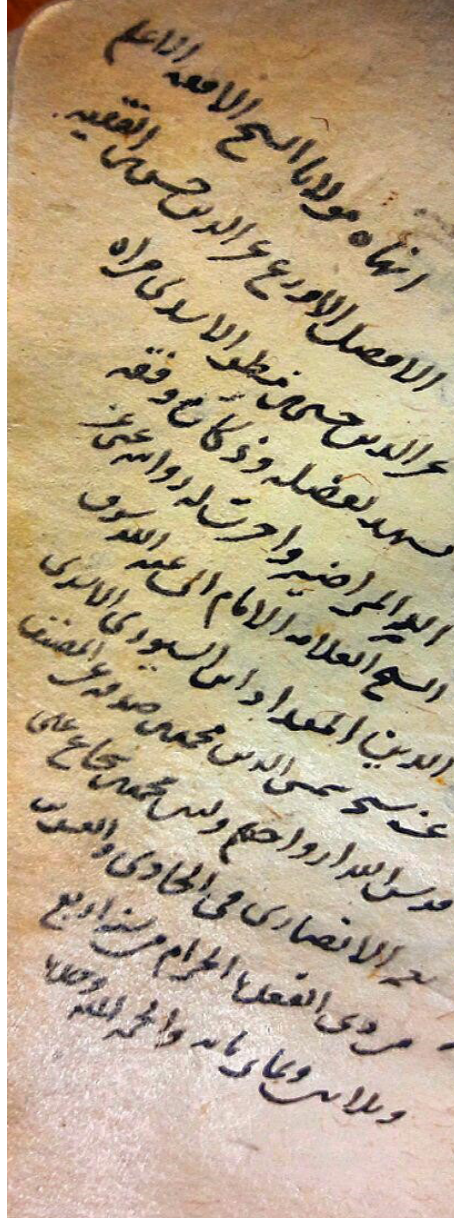 انهاه مولانا الشيخ الافقه الاعلم
الافضل الاورع عز الدين حسن بن الفقيه
عز الدين حسين بن مطهر الاسدى قراءة
تشهد بفضله وذكائه وفقه
الله لمراضيه واجزت له روايته عنى عن
الشيخ العلامة الامام ابى عبد الله شرف
الدين المقداد ابن السيورى الاسدى
عن شيخه شمس الدين محمد بن صدقة عن المصنف
قدس الله ارواحهم وكتب محمد بن شجاع على
الانصارى فى الحادى والعشرين
من ذى القعدة الحرام من سنة اربع
وثلاثين وثمانى مائة والحمد لله وحده